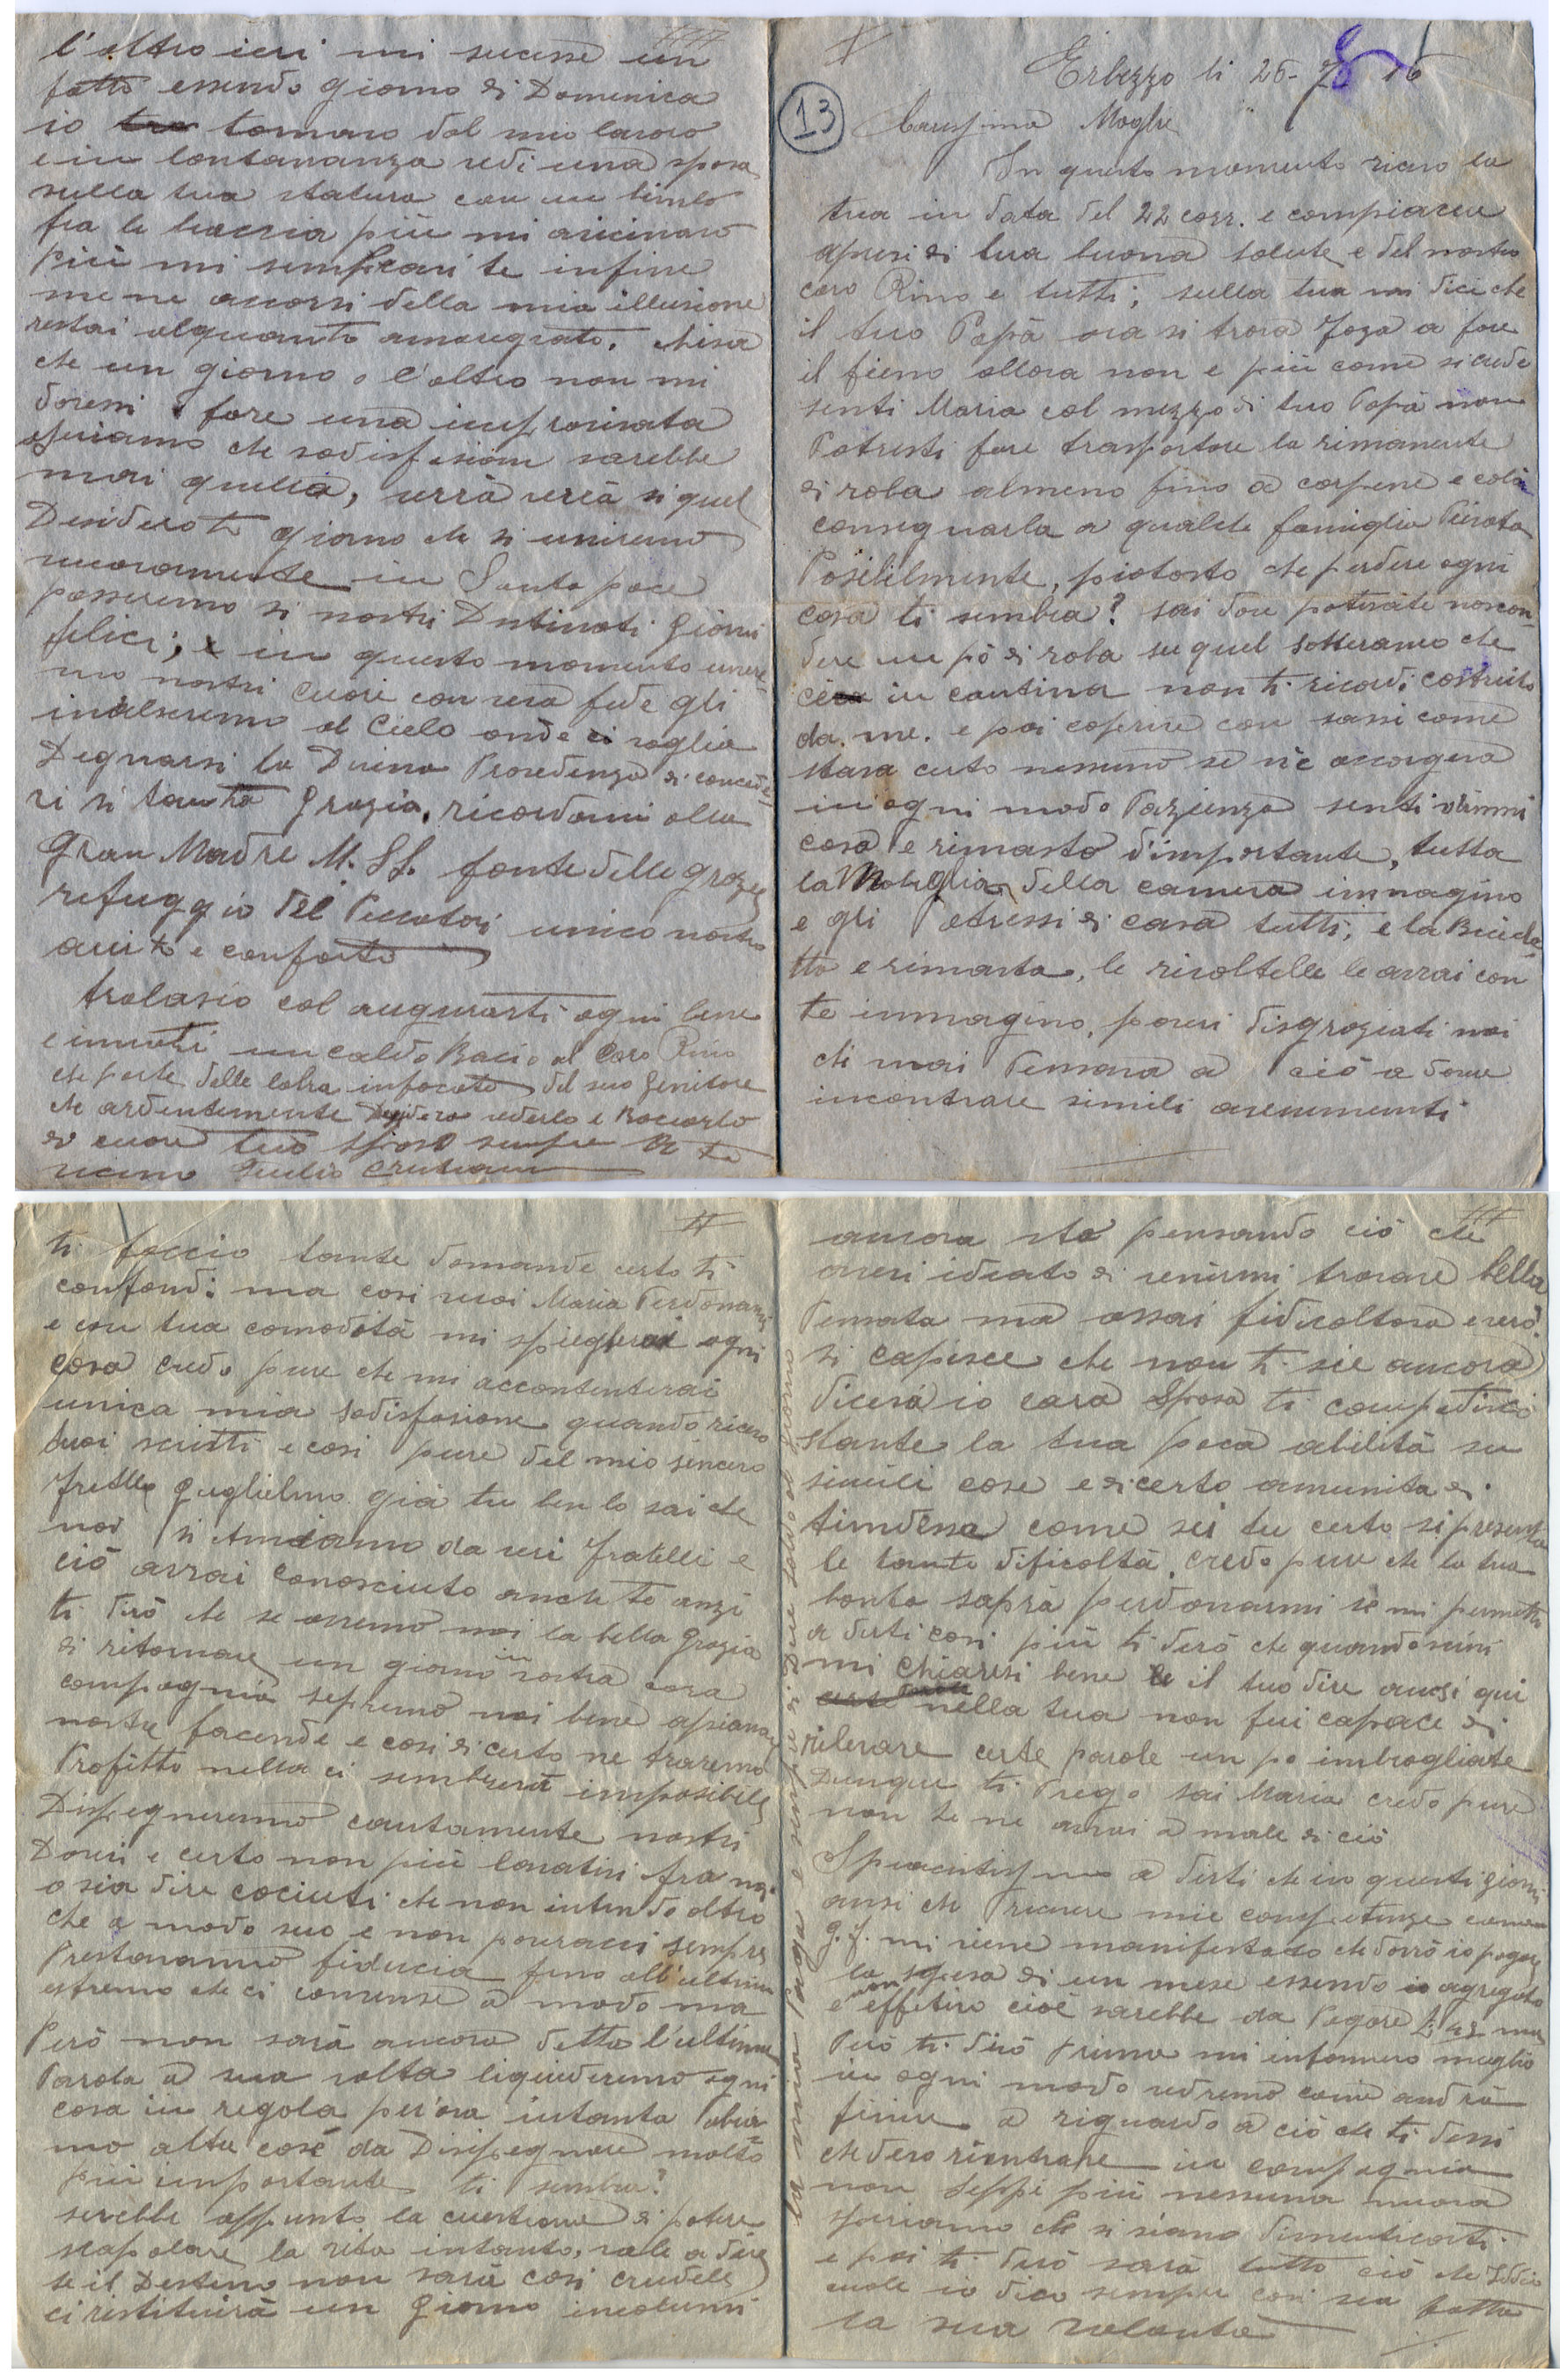 Erbezzo li 26-8 16
13
Carissima Moglie
In questo momento ricevo la
tua in data del 22 corr. e compiacere
apresi di tua buona salute e del nostro
caro Rino e tutti; sulla tua mi dici che
il tuo Papà ora si trova Foza a fare
il fieno allora non e più come si crede
senti Maria col mezzo di tuo Papà non
Potresti fare trasportare la rimanente
di roba almeno fino a carpene e colà
consegnarla a qualche famiglia Privata
Posibilmente, piotosto che perdere ogni
cosa ti sembra? sai dove potereste noscon-
dere un pò di roba su quel sotteraneo che
in cantina non ti ricordi costruito
da me. e poi coperire con sassi come
stava certo nessuno se n'è accorgera
in ogni modo Pazienza senti dimmi
cosa e rimasto d'importante, tutta
la Mobiglia della camera immagino
e gli Atressi di casa tutti, e la Bicicle-
tta e rimasta, le rivoltelle le avrai con
te immagino, poveri disgraziati noi
chi mai Pensava a ciò a dover
incontrare simili avenimenti
II
ti faccio tante domande certo ti
confondi ma cosi vuoi Maria Perdonami
e con tua comodità mi spiegherai ogni
cosa credo pure che mi accontenterai
unica mia sodisfasione quando ricevo
tuoi scritti e cosi pure del mio sincero
fratello Guglielmo già tu ben lo sai che
noi si Amiamo da veri fratelli e
ciò avrai conosciuto anche te anzi
ti dirò che se avremo noi la bella Grazia
di ritornare un giorno in vostra cara
compagnia sepremo noi bene apianare
nostre facende e cosi di certo ne traremo
Profitto nulla ci sembrerà imposibile
Disimpegneremo cautamente nostri
Doveri e certo non più
o sia dire cociuti che non intendo altro
che a modo suo e non poveracci sempre
Prestavanno fiducia fino all'ultimo
estremo che ci a modo ma
Però non sarà ancora detta l'ultima
Parola a sua volta liquideremo ogni
cosa in regola per ora intanto abia-
mo altre cose da Disimpegnare molto
più importante ti sembra?
serebbe appunto la questione di potere
scapolare la vita intanto, vale a dire
se il Destino non sarà cosi crudele
ci restituirà un giorno incolumi
III
ancora sto pensando ciò che
avevi ideato di venirmi trovare bella
Pensata ma assai fidicoltosa e vero?
si capisce che non ti sie ancora
diceva io cara Sposa ti compatisco
stante la tua poca abilità su
simili cose e di certo amunita di
timidessa come sei tu certo si presenta
le tante dificoltà, credo pure che la tua
bontà saprà perdonarmi se mi permetto
a dirti cosi più ti dirò che quando scrivi
mi chiaresi bene il tuo dire ansi qui
nella tua non fui capace di
rilevare certe parole un po imbrogliate
Dunque ti Prego sai Maria credo pure
non te ne avrai a male di ciò
Spiacentissimo a dirti che in questi giorni
ansi che Pricevere mie competenze come
G. F. mi viene manifestato che dovrò io pagare
la spesa di un mese essendo io agregato
e non effetivo cioè sarebbe da Pagare L: 42 ma
Però ti dirò Prima mi informerò meglio
in ogni modo vedremo come andrà
finire a riguardo a ciò che ti dissi
che devo rientrare in compagnia
non seppi più nessuna nuova
speriamo che si siano dimenticati
e poi ti dirò sarà tutto ciò che Iddio
vuole io dico sempre cosi sia fatta
la sua volontà
la mia Paga e sempre di Due soldi al giorno
IIII
l'altro ieri mi sucesse un
fatto essendo giorno di Domenica
io tornavo dal mio lavoro
e in lontananza vedi una sposa
sulla tua statura con un bimbo
fra le braccia più mi avicinavo
più mi sembravi te infine
me ne accorsi della mia illusione
restai alquanto amaregiato. Chisa
che un giorno o l'altro non mi
doressi fare una improvisata
speriamo che sodisfasione sarebbe
mai quella, verrà verrà si quel
Desiderato giorno che si uniremo
nuovamente in Santa pace
passeremo si nostri Destinati giorni
felici; in questo momento unire-
mo nostri cuori con vera fede gli
inalseremo al Cielo onde ci voglia
Degnarsi la Divina Provedenza di conceder-
ci si tanta Grazia, ricordami alla
Gran Madre M. SS. fonte delle Grazie
refuggio dei Peccatori unico nostro
aiuto e conforto
tralascio col augurarti ogni bene
e inviati un caldo Bacio al Caro Rino
che parte delle labra infocate del suo Genitore
che ardentemente Desidera vederlo e Baciarlo
di cuore tuo sposo sempre a te
vicino Giulio